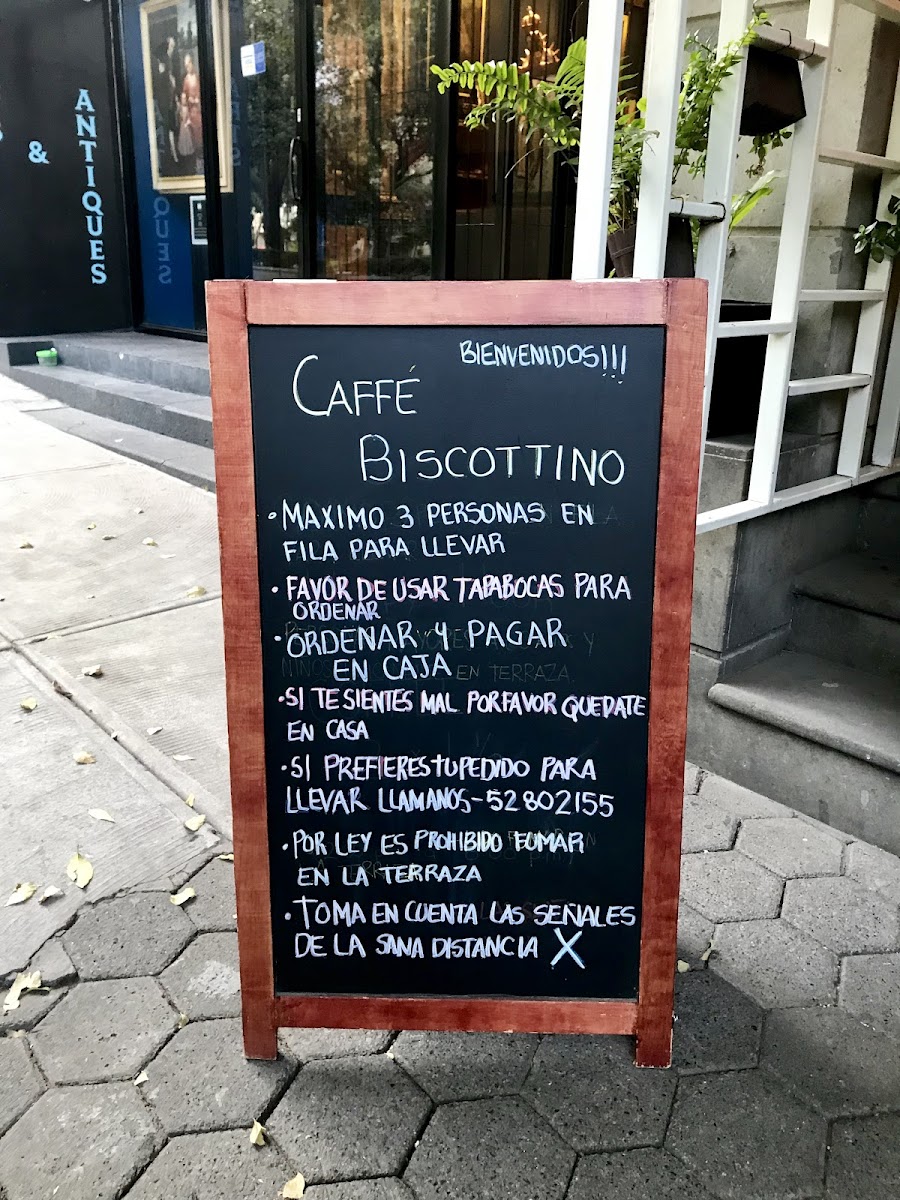 &
ANTIQUES
BIENVENIDOS!!!
CAFFÉ
BISCOTTINO
• MAXIMO 3 PERSONAS EN
FILA PARA LLEVAR
• FAVOR DE USAR TAPABOCAS PARA
ORDENAR
• ORDENAR Y PAGAR
EN CAJA
EN TERRAZA.
• SI TE SIENTES MAL PORFAVOR QUEDATE
EN CASA
• SI PREFIERES TU PEDIDO PARA
LLEVAR LLAMANOS-52802155
• POR LEY ES PROHIBIDO FUMAR
EN LA TERRAZA
• TOMA EN CUENTA LAS SEÑALES
DE LA SANA DISTANCIA X